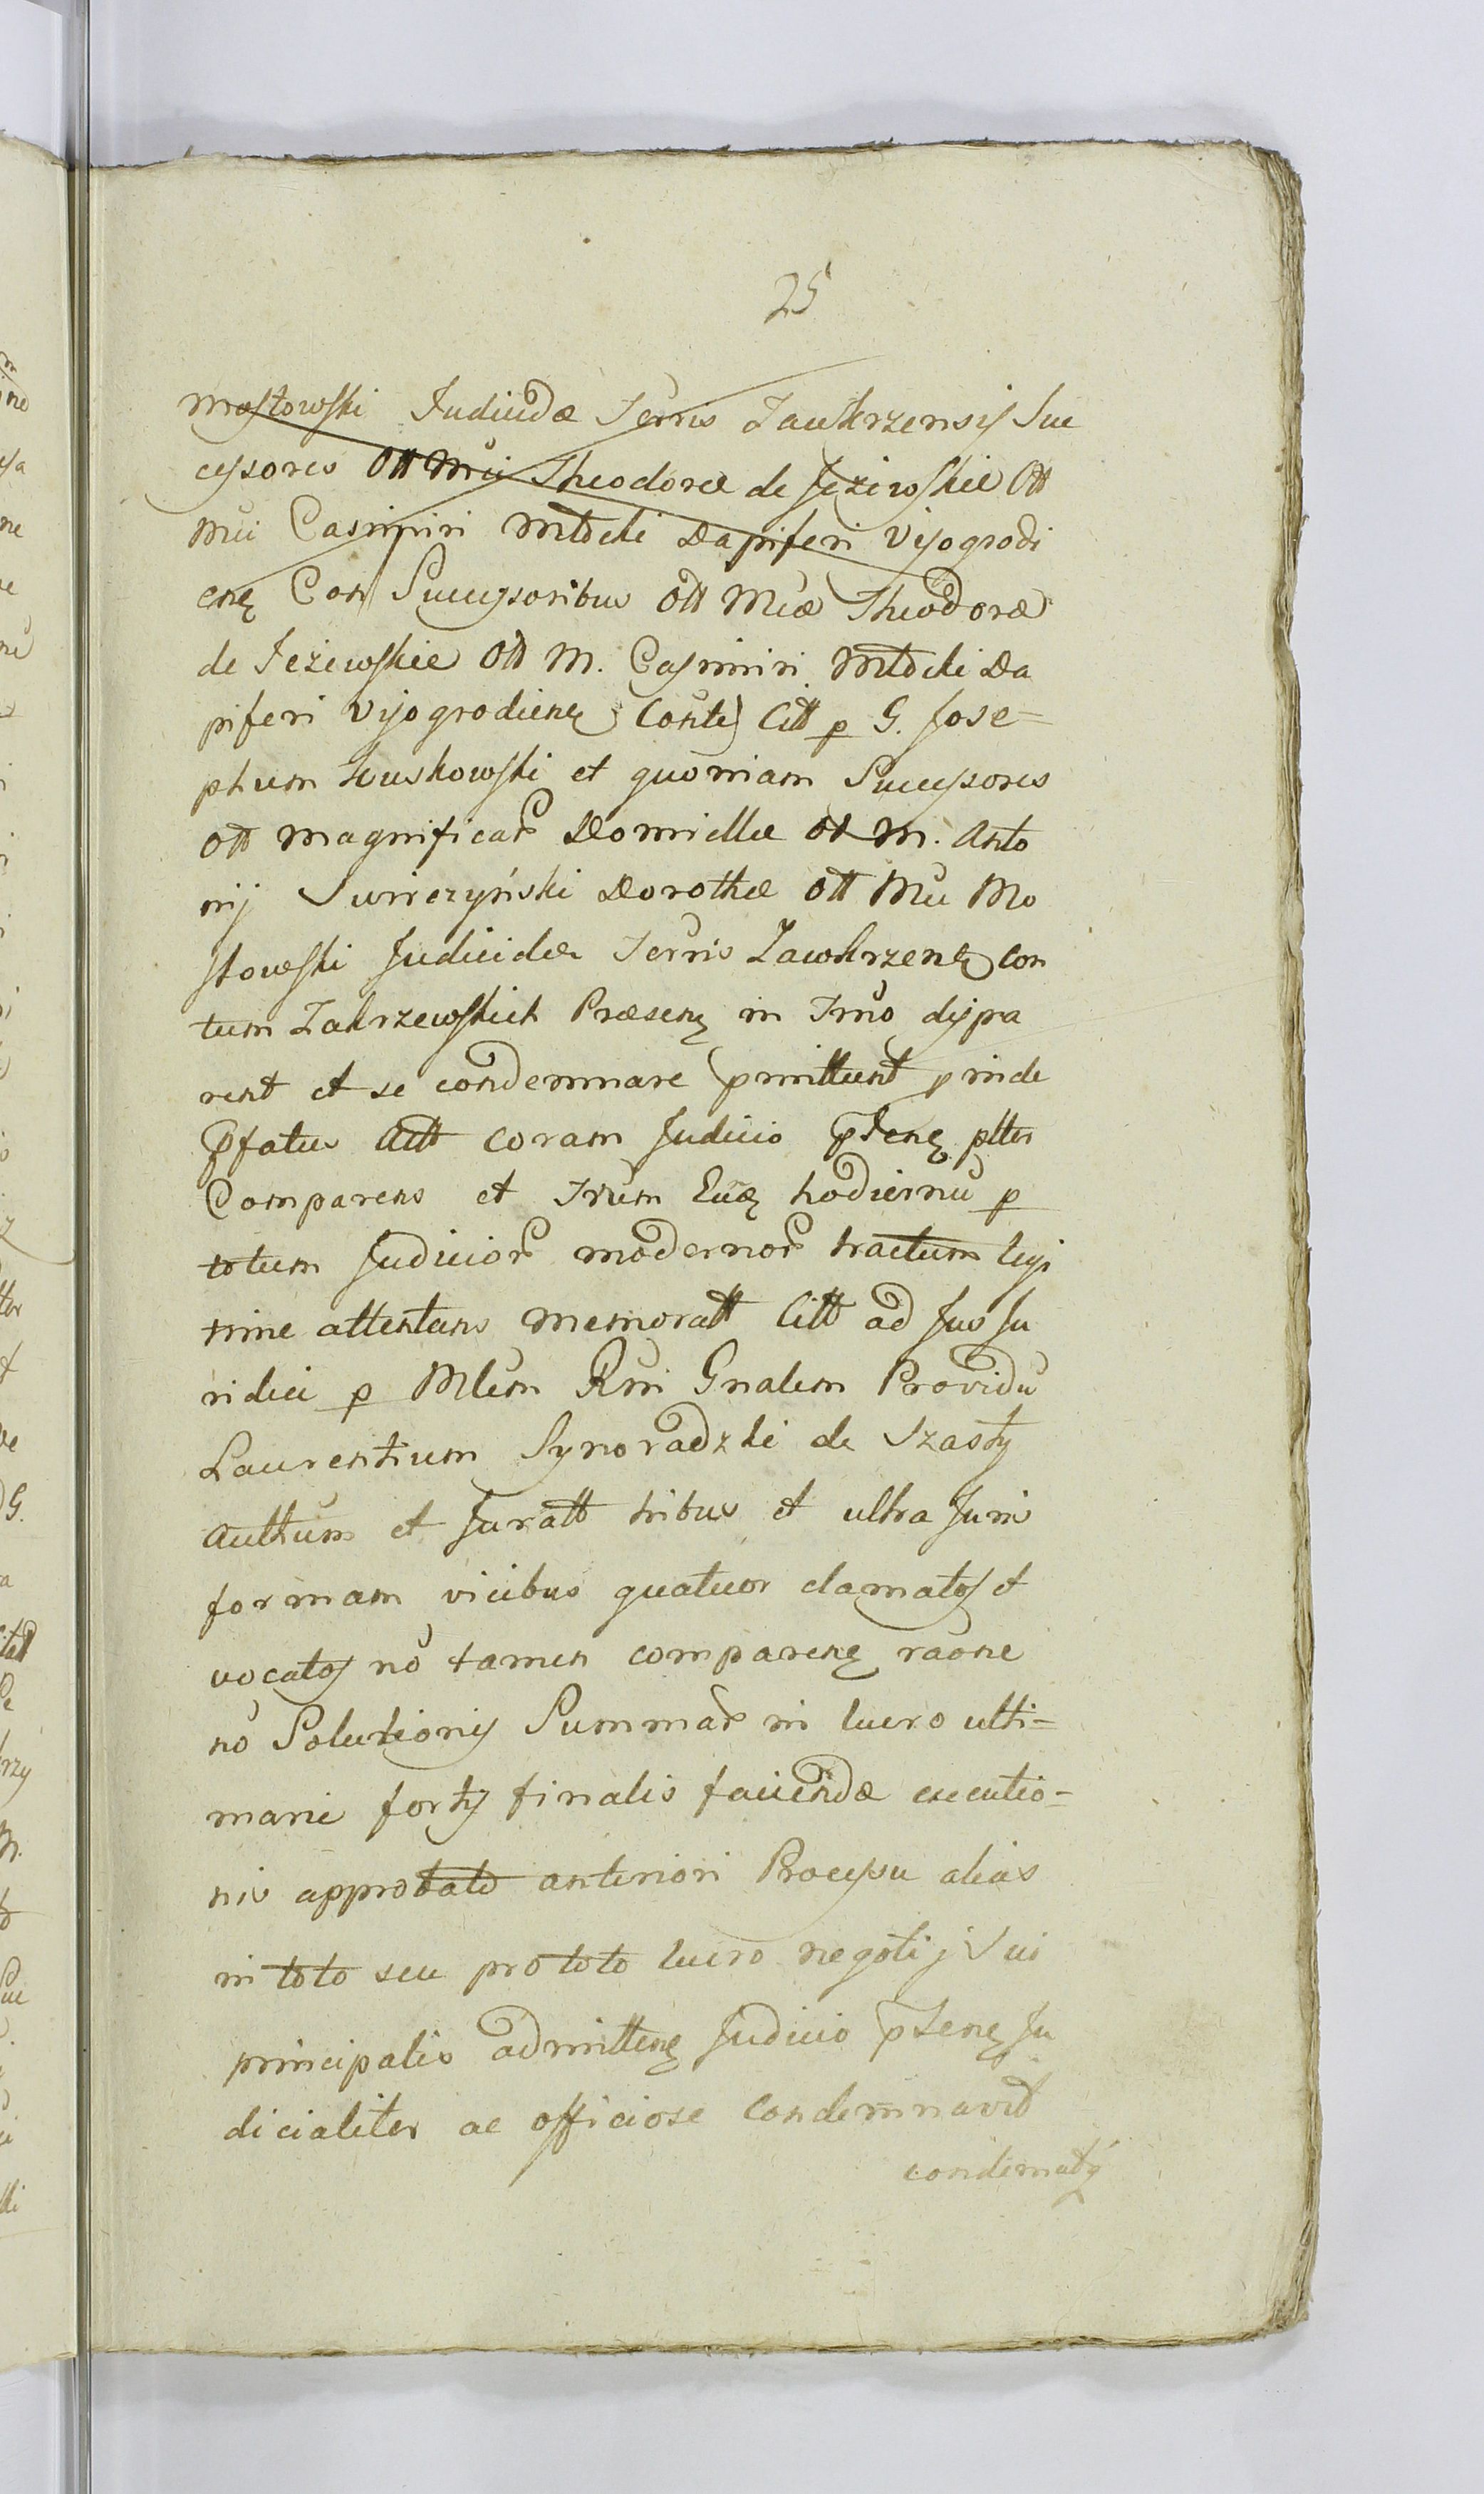 25
Mostowski Judicidæ Terris Zawkrzensis Suc
cessores Ott Mci Theodoræ de Jeziewskie Ott
Mci Casimiri Młocki Dapiferi Vissogrodi
enȩ Con Successoribus Ott Mcæ Theodoræ
de Jeżewskie Ott M. Casimiri Młocki Da
piferi Vissogrodienȩ Conte Citt p G. Jose=
phum Łuskowski et quoniam Successores
Ott Magnificar Domicellæ Ott M. Anto
nij Swirczyński Dorothæ Ott Mci Mo
stowski Judicidæ Terris Zawkrzenȩ Con
tum Zakrzewskich Præsenȩ in Trno dispa
rent et se condemnare pmittunt pinde
pfatus Actt coram Judicio pſenȩ pltr
Comparens et Trum Euȩ hodiernū p
totum Judicior modernor tractum legi
time attentans memoratt Citt ad Jus Ju
ridici p Mlem Rni Gnalem Providū
Laurentium Synoradzki de Szasty
Autthum et Juratt tribus et ultra Juris
formam vicibus quatuor clamatos et
vocatos nō tamen comparenȩ raōne
nō Solutionis Summar in lucro ulti=
marie fortis finalis faciendæ executio=
nis approbato anteriori Processu alias
in toto seu pro toto lucro negotij sui
principalis admittenȩ Judicio pſenȩ Ju
dicialiter ac officiose Condemnavit
condemnatȩ